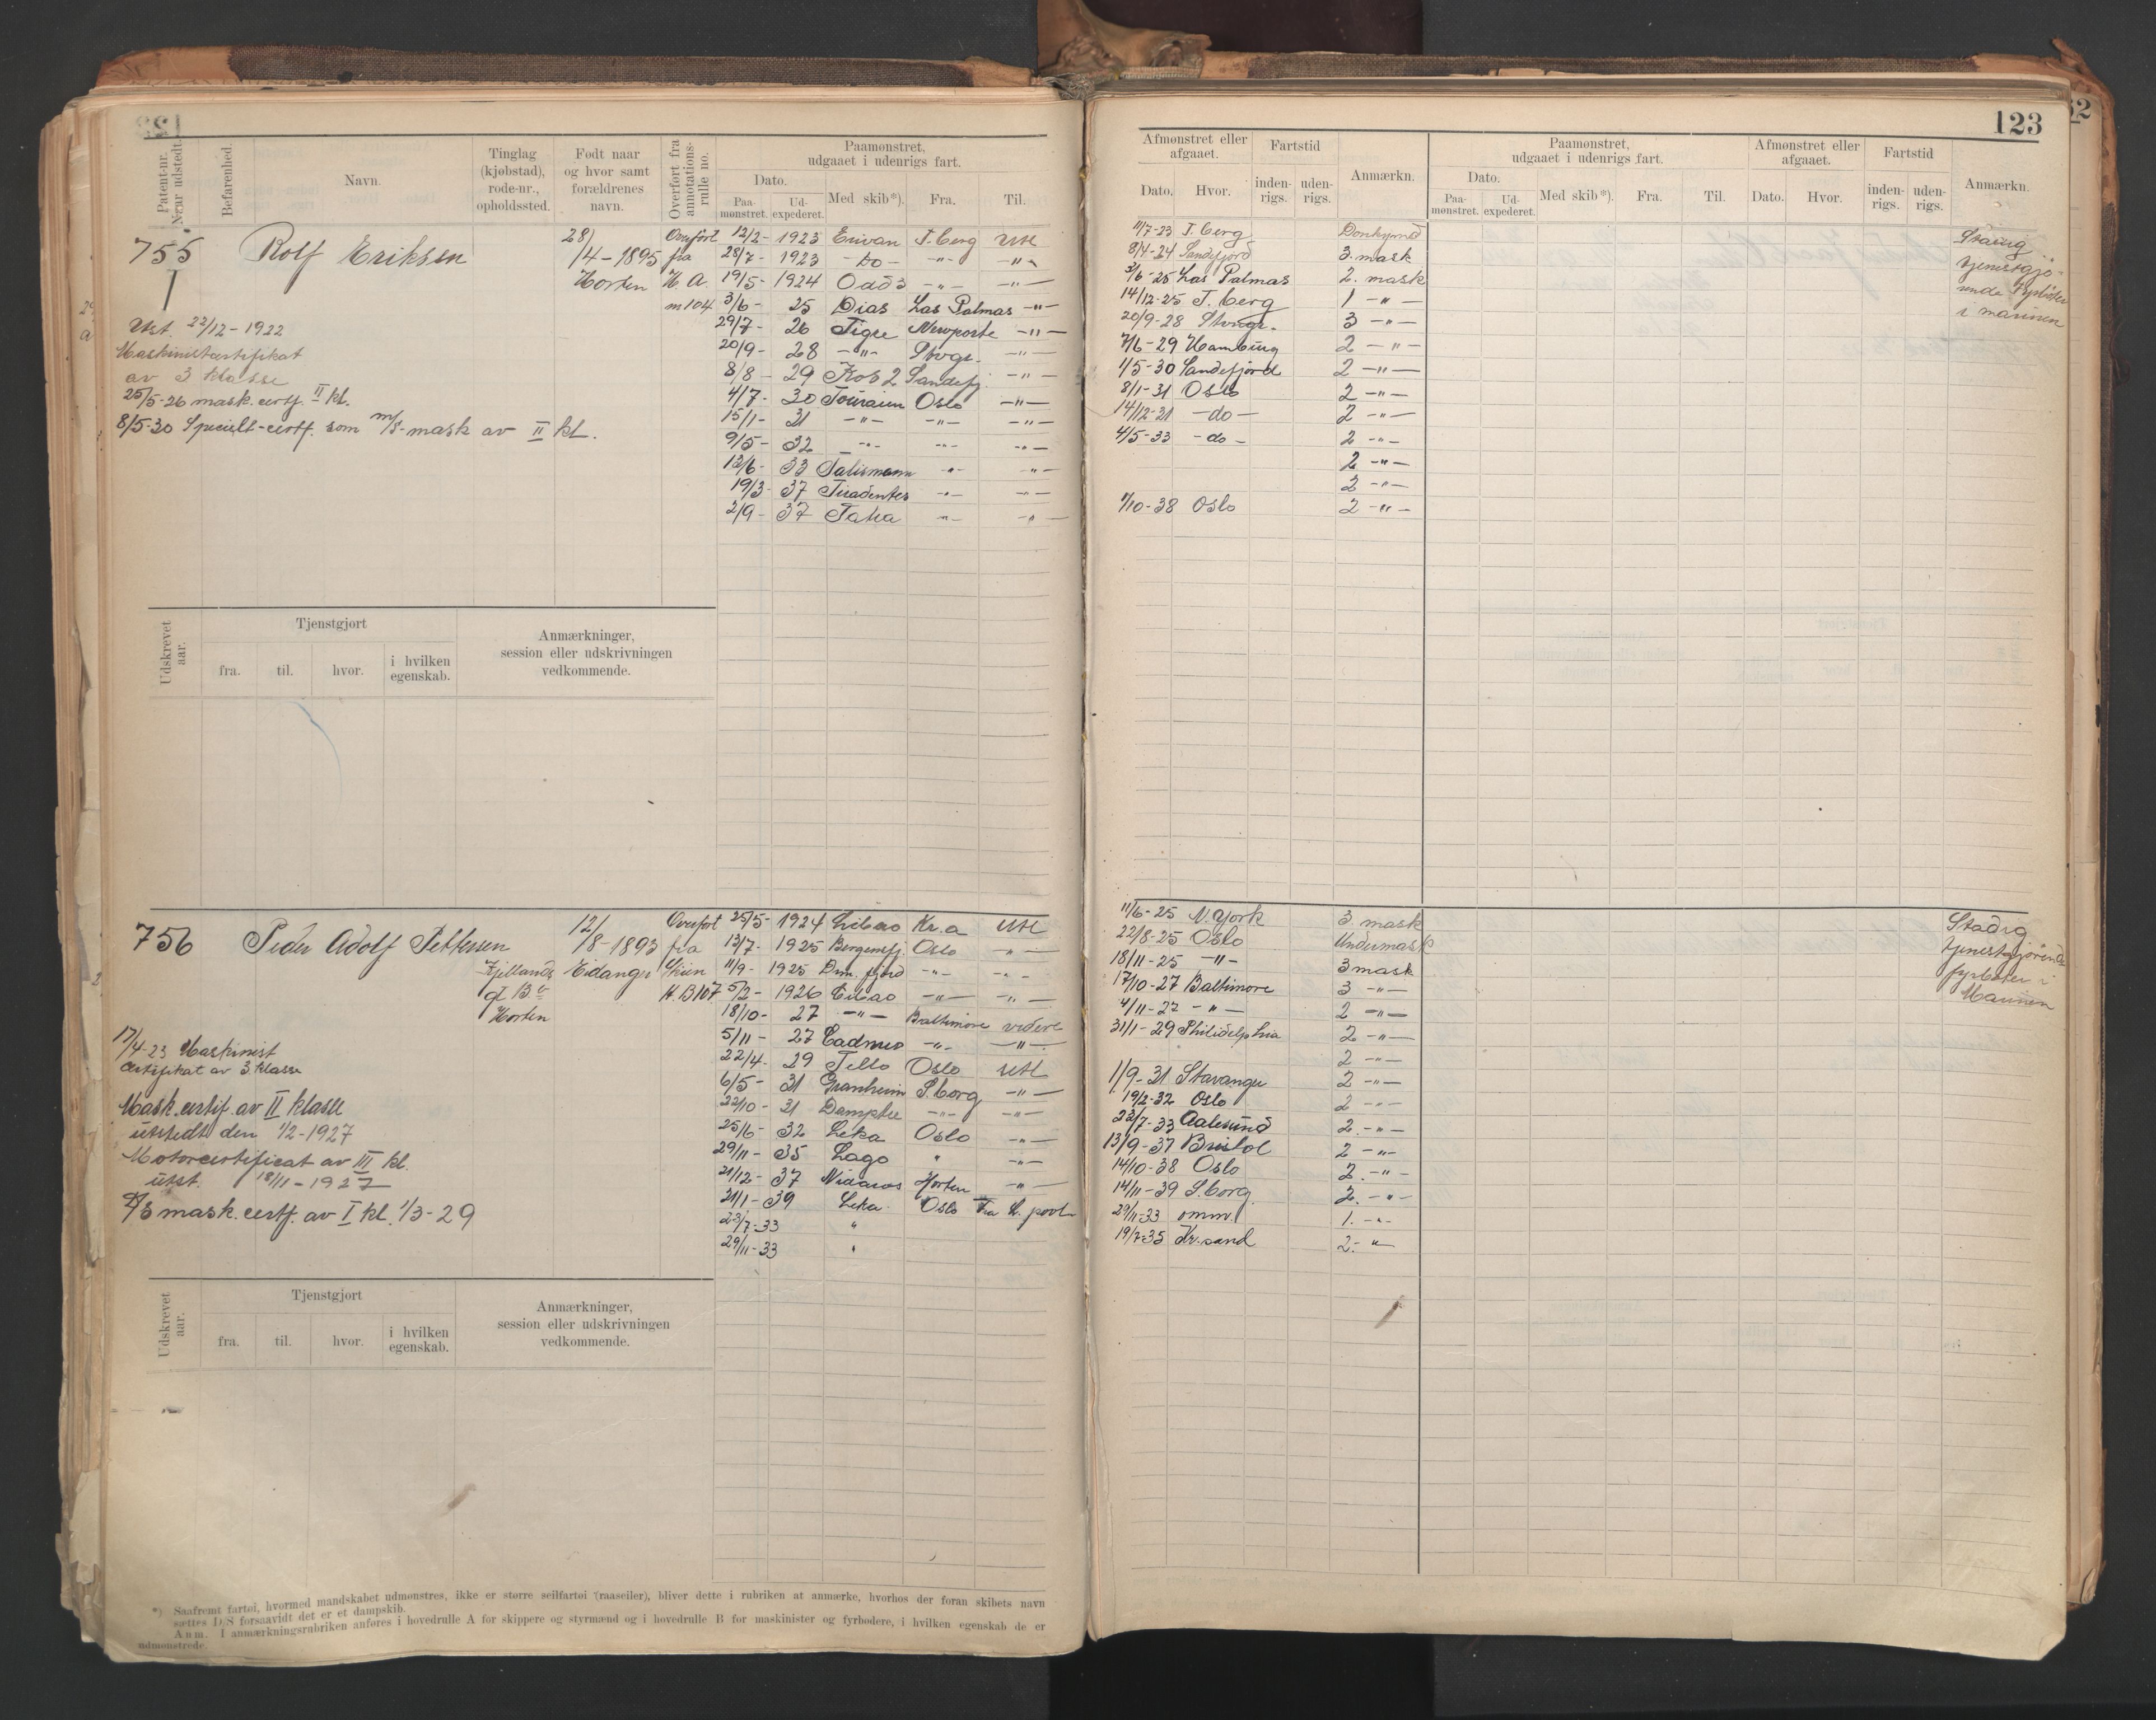 123
Patent-nr. Naar udstedt.
Befarenhed.
Navn.
Tinglag (kjøbstad), rode-nr., opholdssted.
Født naar og hvor samt forældrenes navn.
Overført fra annotations-rulle no.
Paamønstret, udgaaet i udenrigs fart.
Dato.
Paa-mønstret.
Ud-expederet.
Med skib*).
Fra.
Til.
Afmønstret eller afgaaet.
Dato.
Hvor.
Fartstid
inden-rigs.
uden-rigs.
Anmærkn.
Paamønstret, udgaaet i udenrigs fart.
Dato.
Paa-mønstret.
Ud-expederet.
Med skib*).
Fra.
Til.
Afmønstret eller afgaaet.
Dato.
Hvor.
Fartstid
inden-rigs.
uden-rigs.
Anmærkn.
755 Rolf Eriksen
28/4-1895 Horten
Overført fra H. A. m 104
Utst. 22/12-1922
Maskinistcertifikat
av 3 klasse
25/5-26 mask. certf. II kl.
8/5-30 Specielt-certf. som m/s-mask av II kl.
12/2- 1923 Erivan T.berg Utl 11/7-23 T.berg Donkymd
28/7- 1923 -do- -"- -"- 8/4-24 Sandefjord 3. mask
19/5- 1924 Odd 3 -"- -"- 3/6-25 Las Palmas 2. mask
3/6- 25 Dias Las Palmas -"- 14/12-25 T.berg 1 -"-
29/7- 26 Tigre Newporte -"- 20/9-28 Stvgr. 3 -"-
20/9- 28 -"- Stvgr. -"- 7/6-29 Hamburg 2 -"-
8/8- 29 Kos 2 Sandefj. -"- 1/5-30 Sandefjord 2 -"-
4/7- 30 Touraine Oslo -"- 8/1-31 Oslo 2 -"-
15/1- 31 -"- -"- -"- 14/12-31 -do- 2 -"-
9/5- 32 -"- -"- -"- 4/5-33 -do- 2 -"-
13/6- 33 Talismann -"- -"- 2 -"-
19/3- 37 Tiradentes -"- -"- 2 -"-
2/9- 37 Taka -"- -"- 1/10-38 Oslo 2 -"-
Stadig
tjenestgjø-
rende Fyrbøter
i marinen
Udskrevet aar.
Tjenstgjort
fra.
til.
hvor.
i hvilken egenskab.
Anmærkninger, session eller udskrivningen vedkommende.
756 Peder Adolf Pettersen
Kjellands gt 13 Horten
12/8-1893 Eidanger
Overført fra Skien H.B107
17/4-23 Maskinist
Certifikat av 3. klasse
Mask. certif. av II klasse
utstedt den 1/2-1927
Motorcertificat av III kl.
utst. 18/11-1927
D/S mask. certf. av I kl. 1/3-29
25/5- 1924 Libao Kr.a Utl 11/6-25 N.York 3. mask
13/7- 1925 Bergensfj. Oslo -"- 22/8-25 Oslo Undermask
11/9- 1925 Drm. fjord -"- -"- 18/11-25 -"- 3 mask
5/2- 1926 -"- -"- 17/10-27 Baltimore 3 -"-
18/10- 27 -"- Baltimore videre 4/11-27 -"- 2 -"-
5/11- 27 Cadmus -"- -"- 31/1-29 Philidelphia 2 -"-
22/4- 29 Tello Oslo utl 2 -"-
6/5- 31 Granheim S.borg -"- 1/9-31 Stavanger 2 -"-
22/10- 31 Dampter -"- -"- 19/2-32 Oslo 2 -"-
25/6- 32 Leka Oslo -"- 22/7-33 Aalesund 2. -"-
29/11- 35 Lago " -"- 13/9-37 Bristol 2 -"-
21/12- 37 Nidaros Horten -"- 14/10-38 Oslo 2. -"-
21/1- 39 Leka Oslo Fra L.pool 14/11-39 S.borg. 2. -"-
23/7-33 " 29/11-33 omm. 1. -"-
29/11-33 " 19/7-35 Kr.sand 2. -"-
Stadig
tjenestgjørende
fyrbøter i
Marinen
Udskrevet aar.
Tjenstgjort
fra.
til.
hvor.
i hvilken egenskab.
Anmærkninger, session eller udskrivningen vedkommende.
*) Saafremt fartøi, hvormed mandskabet udmønstres, ikke er større seilfartøi (raaseiler), bliver dette i rubriken at anmærke, hvorhos der foran skibets navn
sættes D/S forsaavidt det er et dampskib.
Anm. I anmærkningsrubriken anføres i hovedrulle A for skippere og styrmænd og i hovedrulle B for maskinister og fyrbødere, i hvilken egenskab de er
udmønstrede.